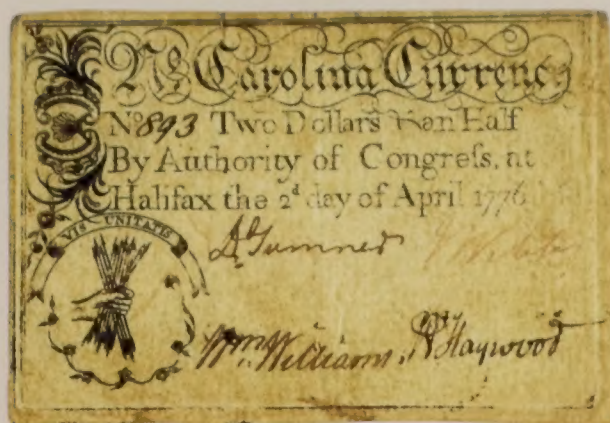 No Carolina Currency
No 893 Two Dollars & an Half
By Authority of Congreſs, at
Halifax the 2d day of April 1776
VIS UNITATIS
D. Sumner
Wm Williams. Wm Haywood